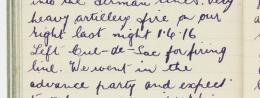 into the German lines. Very
heavy artillery fire on our
right last night 1.4.16
Left Cul-de-Sac for firing
line. We went in the
advance party and expect